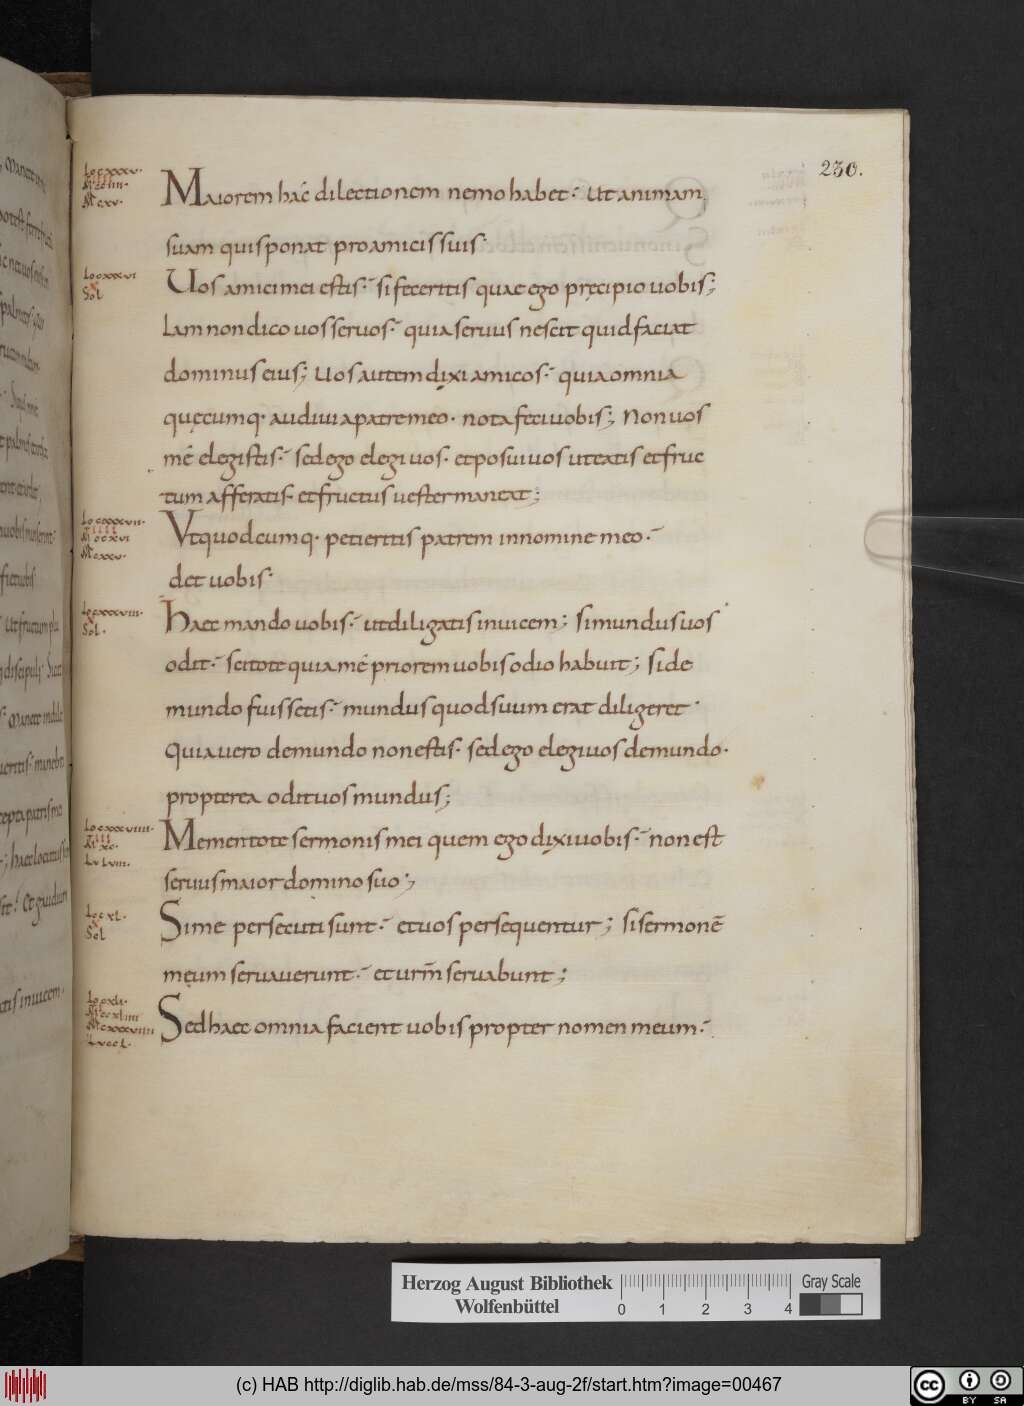 230.
Maiorem hac̄ dilectionem nemo habet· Ut animam
suam quis ponat pro amicis suis·
Uos amici mei estis· si feceritis quae ego pręcipio uobis;
Iam non dico uos seruos· quia seruus nescit quid faciat
dominus eius; Uos autem dixi amicos· quia omnia
quęcumq· audiui a patre meo· nota feci uobis; Non uos
mé elegistis· sed ego elegi uos· et posui uos ut eatis et fruc
tum afferatis· et fructus uester maneat;
Vt quodcumq· petieritis patrem in nomine meo·
det uobis·
Haec mando uobis· ut diligatis inuicem; Si mundus uos
odit· scitote quia mé priorem uobis odio habuit; Si de
mundo fuissetis· mundus quod suum erat diligeret·
Quia uero de mundo non estis· sed ego elegi uos de mundo·
propterea odit uos mundus;
Mementote sermonis mei quem ego dixi uobis· non est
seruus maior domino suo;
Si me persecuti sunt· et uos persequentur; Si sermonē
meum seruauerunt· et urm̄ seruabunt;
Sed haec omnia facient uobis propter nomen meum·
Herzog August Bibliothek
Wolfenbüttel
0 1 2 3 4
Gray Scale
(c) HAB http://diglib.hab.de/mss/84-3-aug-2f/start.htm?image=00467
cc BY SA